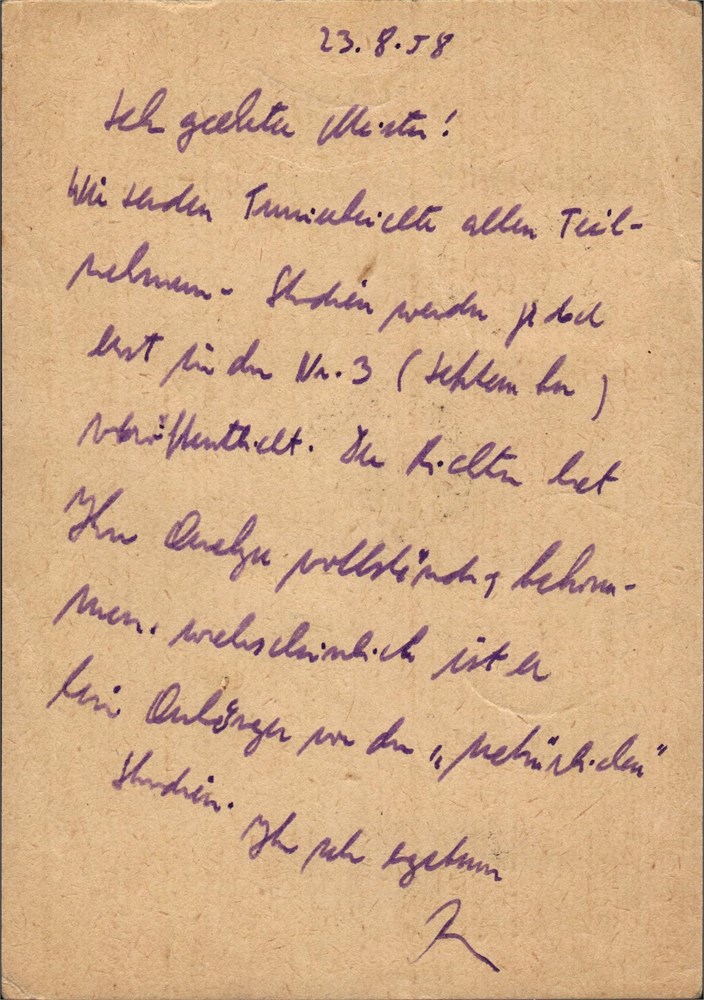 23.8.58
Sehr geehrter Meister!
Wir senden Turnierberichte allen Teil-
nehmern. Studien werden jedoch
erst in der Nr. 3 (September)
veröffentlicht. Der Richter hat
Ihre Analyse vollständig bekom-
men. wahrscheinlich ist er
kein Anhänger von den „natürlichen"
Studien. Ihr sehr ergebener